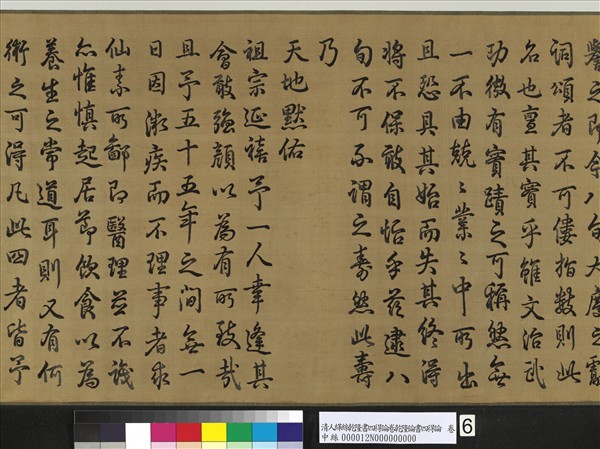 譽之即今八旬大慶之
詞頌者不可僂指數則此
名也亶其實乎雖文治武
功微有實蹟之可稱然無
一不由兢〻業〻中所出
且恐具其始而失其終得
將不保敢自怡乎茲逮八
旬不可不謂之壽然此壽
乃
天地默佑
祖宗延禧予一人幸逢其
會敢強顏以為有所致哉
且予五十五年之間無一
日因微疾而不理事者求
仙素所鄙即醫理並不識
亦惟慎起居節飲食以為
養生之常道耳則又有何
術之可得凡此四者皆予
清人緙絲乾隆書四得論卷乾隆論書四得論 卷
中絲 000012N000000000
6